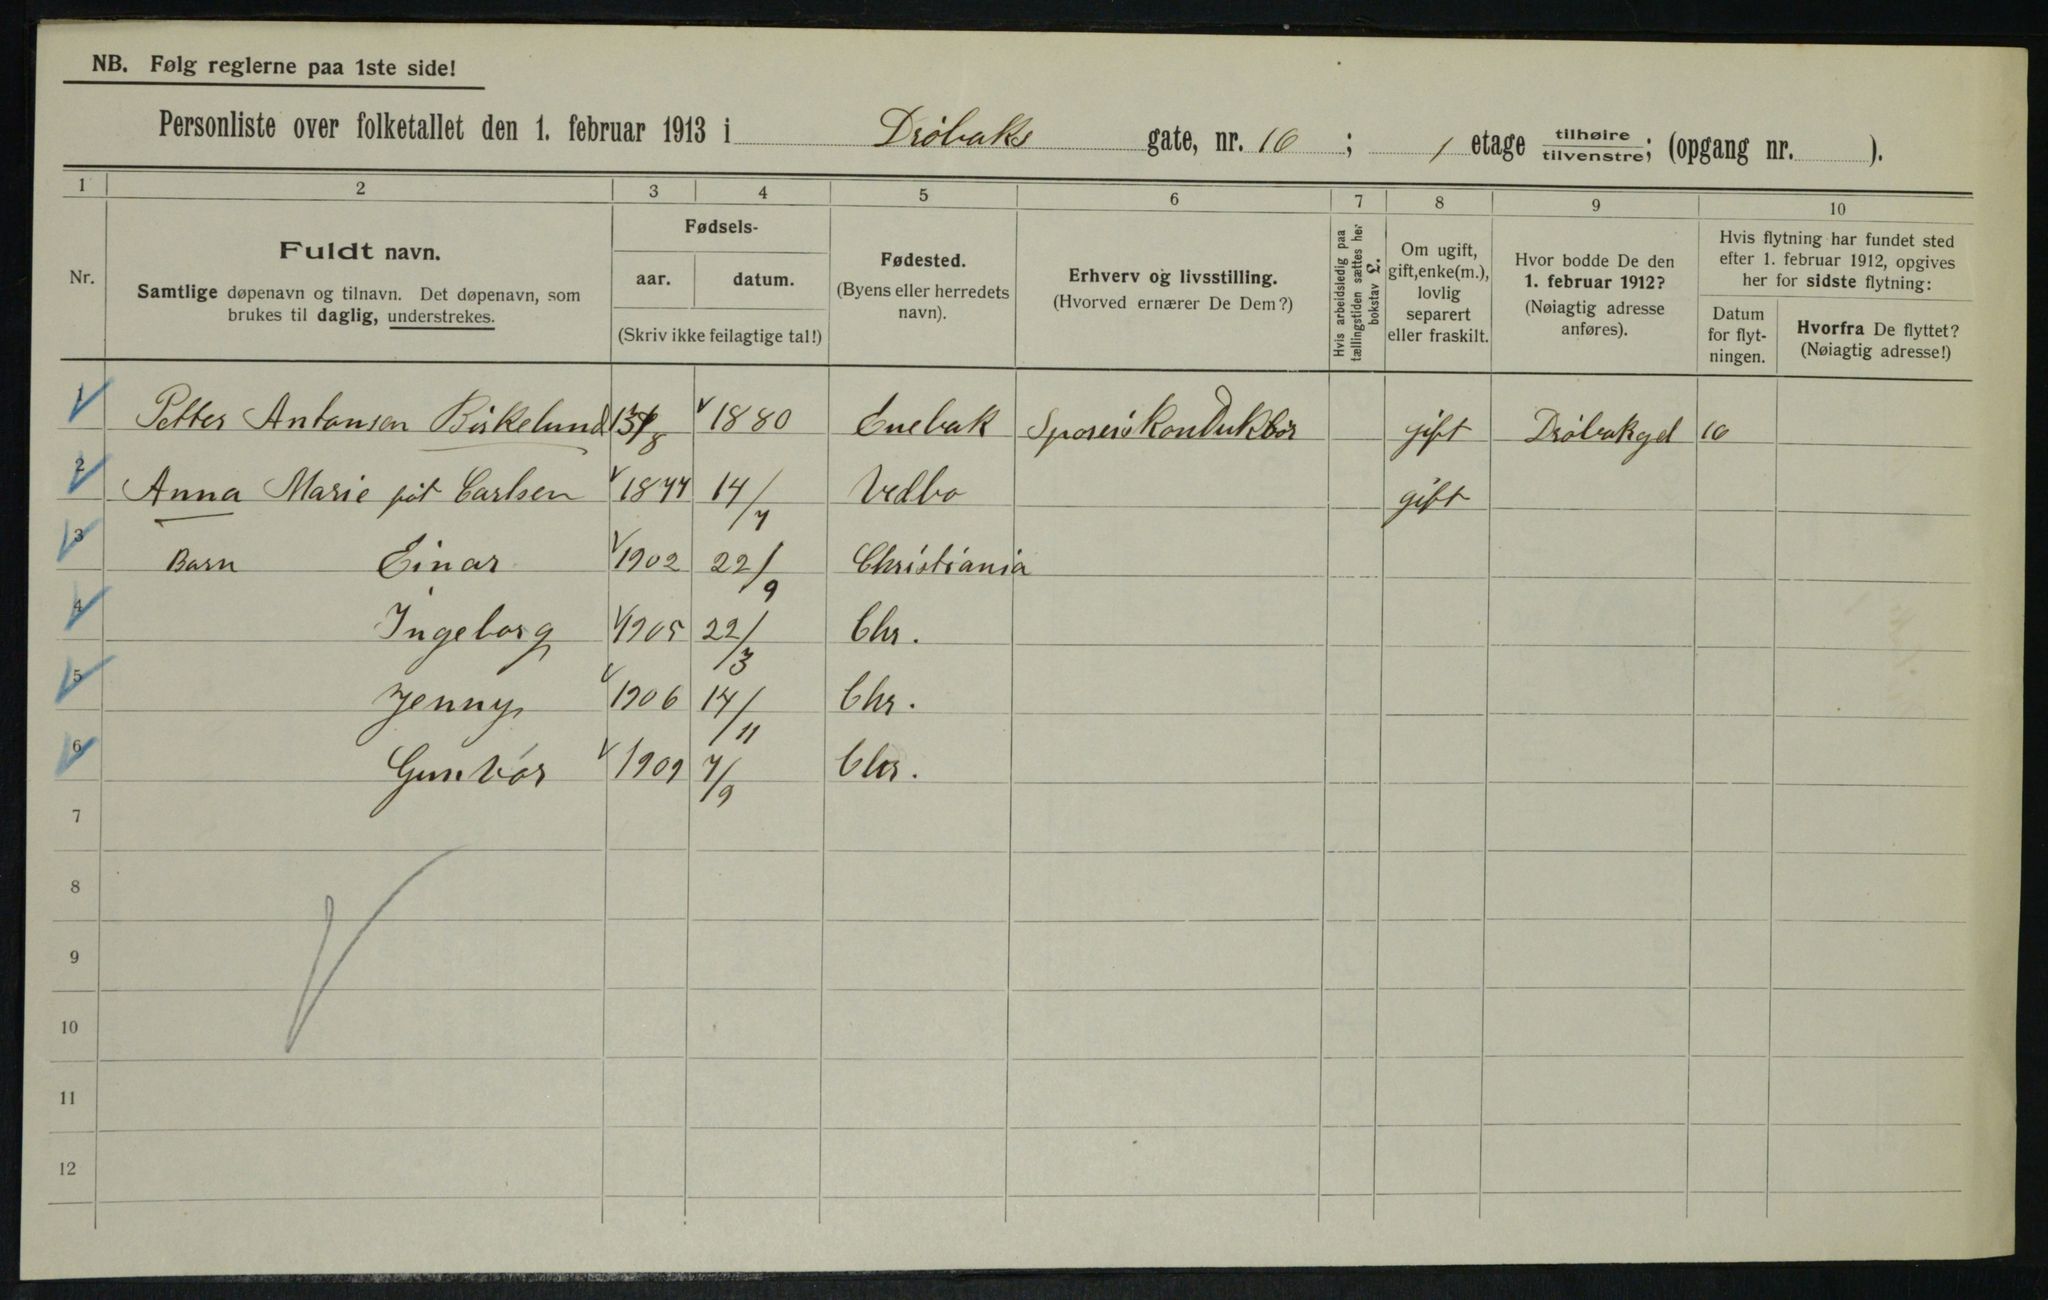 NB. Følg reglerne paa 1ste side!
Personliste over folketallet den 1. februar 1913 i Drøbaks gate, nr. 10; 1 etage tilhøire tilvenstre; (opgang nr. ).
1 2 3 4 5 6 7 8 9 10
Nr.
Fuldt navn.
Samtlige døpenavn og tilnavn. Det døpenavn, som
brukes til daglig, understrekes.
Fødsels-
aar. datum.
(Skriv ikke feilagtige tal!)
Fødested.
(Byens eller herredets
navn).
Erhverv og livsstilling.
(Hvorved ernærer De Dem?)
Hvis arbeidsledig paa
tællingstiden sættes her
bokstav L.
Om ugift,
gift, enke(m.),
lovlig
separert
eller fraskilt.
Hvor bodde De den
1. februar 1912?
(Nøiagtig adresse
anføres).
Hvis flytning har fundet sted
efter 1. februar 1912, opgives
her for sidste flytning:
Datum
for flyt-
ningen.
Hvorfra De flyttet?
(Nøiagtig adresse!)
1 Petter Antonsen Birkelund 1880 Enebak Sporeiskonduktør gift Drøbakgd 10
2 Anna Marie føt Carlsen 1877 14/7 Vedbo gift
3 Barn Einar 1902 22/9 Christiania
4 Ingeborg 1905 22/3 Chr.
5 Jenny 1906 14/11 Chr.
6 Gunvor 1909 7/9 Chr.
7
8
9
10
11
12